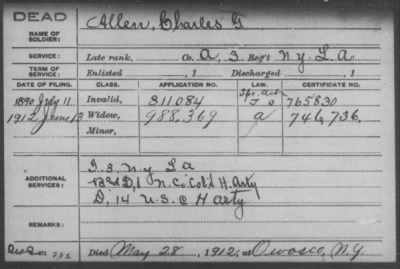 DEAD
NAME OF SOLDIER: Allen, Charles G
SERVICE: Late rank, Co. A, 3 Reg't N.Y. L. A.
TERM OF SERVICE: Enlisted , 1 Discharged , 1
DATE OF FILING. CLASS. APPLICATION NO. LAW. CERTIFICATE NO.
1890 July 11 Invalid, 811084 765830
1912 June 13 Widow, 988,369 a 746,736.
Minor,
ADDITIONAL SERVICES: I. 3, N.Y. L a
B & D, 1 N. Co Col'd H. Arty
D, 14 U.S.C H arty
REMARKS:
Died May 28, 1912, at Owasco, N.Y.